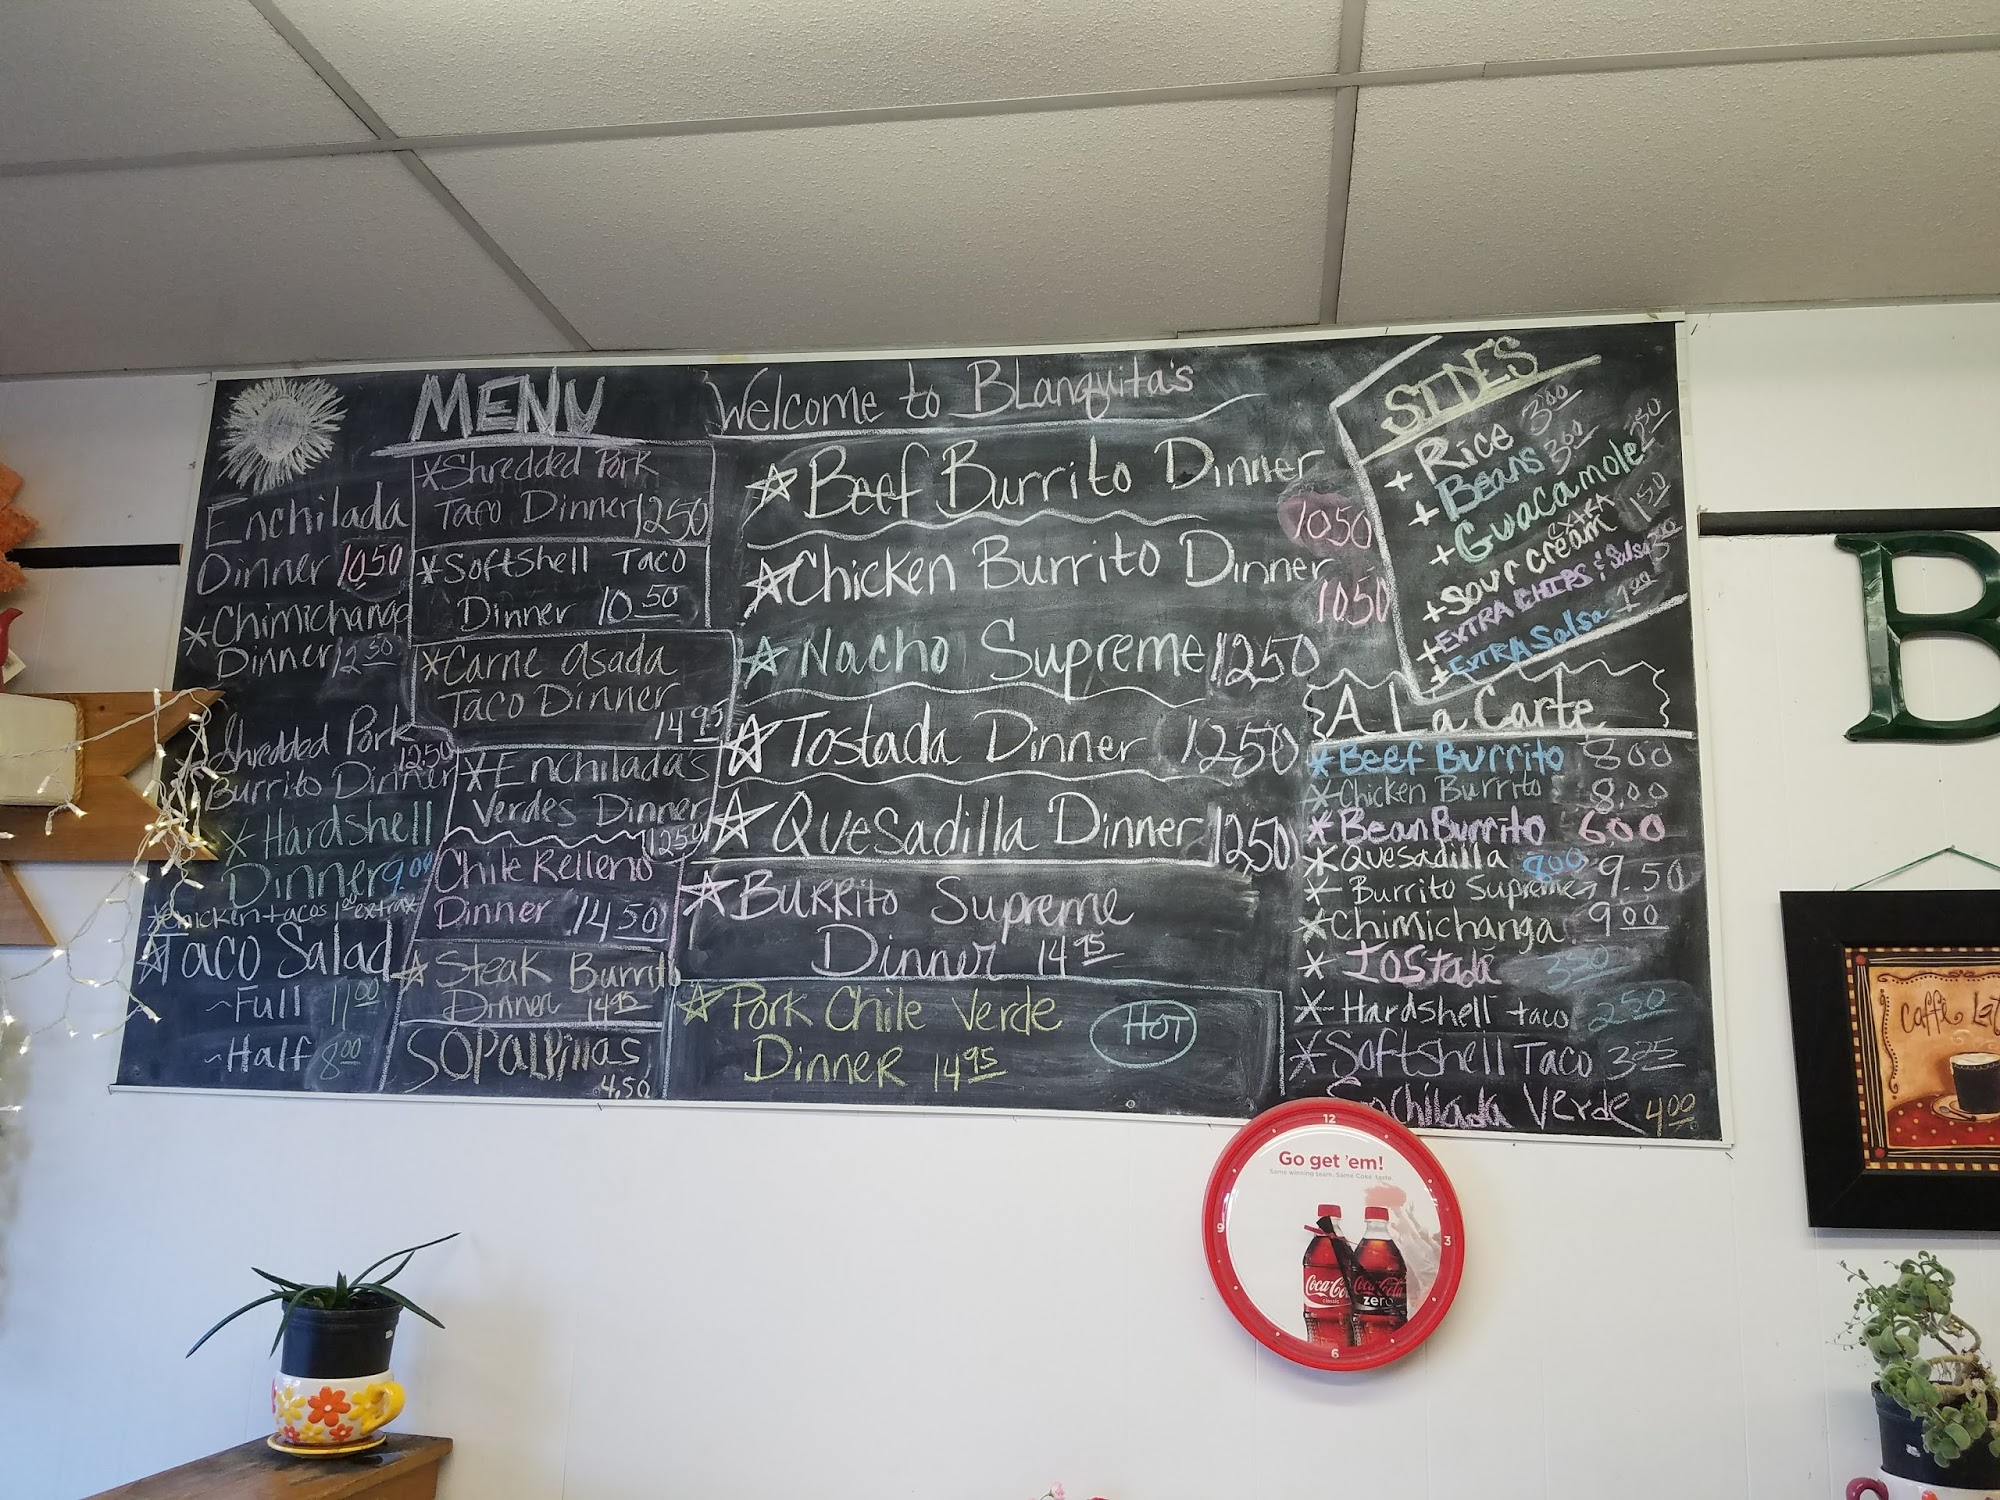 MENU
Enchilada
Dinner 10.50
*Chimichanga
Dinner 12.50
Shredded Pork
Burrito Dinner 12.50
*Hardshell
Dinner 9.00
*Chicken tacos 1.00 extra*
Taco Salad
~Full 11.00
~Half 8.00
*Shredded Pork
Taco Dinner 12.50
*Softshell Taco
Dinner 10.50
*Carne asada
Taco Dinner
14.95
*Enchiladas
Verdes Dinner
12.50
Chile Relleno
Dinner 14.50
Steak Burrito
Dinner 14.95
SOPAipillas
4.50
Welcome to BLanquita's
Beef Burrito Dinner
10.50
Chicken Burrito Dinner
10.50
Nacho Supreme 12.50
Tostada Dinner 12.50
Quesadilla Dinner 12.50
Burrito Supreme
Dinner 14.95
Pork Chile Verde
Dinner 14.95
HOT
SIDES
+ Rice 3.00
+ Beans 3.00
+ Guacamole 2.50
extra
+ Sour cream 1.50
+ EXTRA CHIPS & Salsa 3.00
+ EXTRA Salsa 1.00
A La Carte
*Beef Burrito 8.00
*Chicken Burrito 8.00
*Bean Burrito 6.00
*Quesadilla 8.00
* Burrito Supreme 9.50
*Chimichanga 9.00
* Tostada 3.50
*Hardshell taco 2.50
*Softshell Taco 3.25
Enchilada Verde 4.00
B
Caffe
12
3
6
9
Go get 'em!
Same winning team. Same Coke taste.
Coca-Cola
classic
Coca-Cola
zero